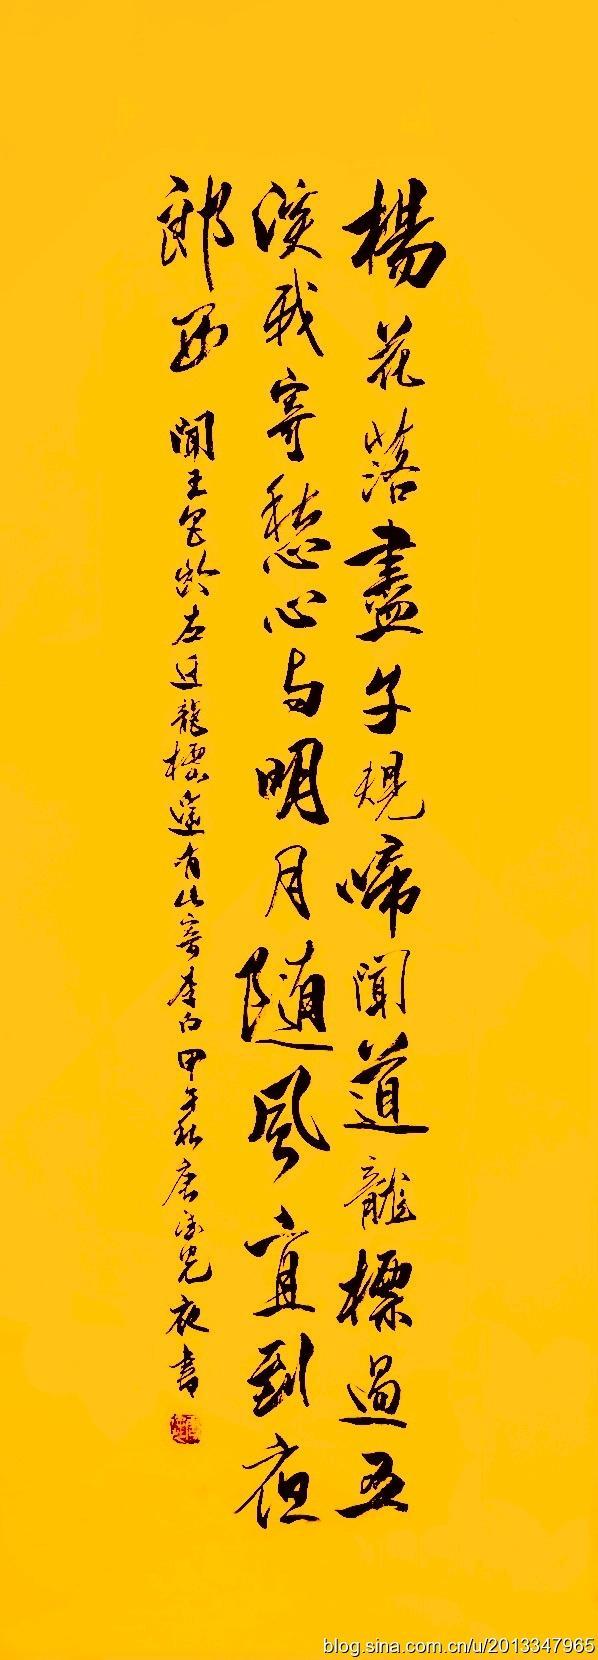 楊花落盡子規啼聞道龍標過五
溪我寄愁心与明月随風直到夜
郎西 聞王昌龄左迁龍標遥有此寄李白甲午秋唐夜書
blog.sina.com.cn/u/2013347965